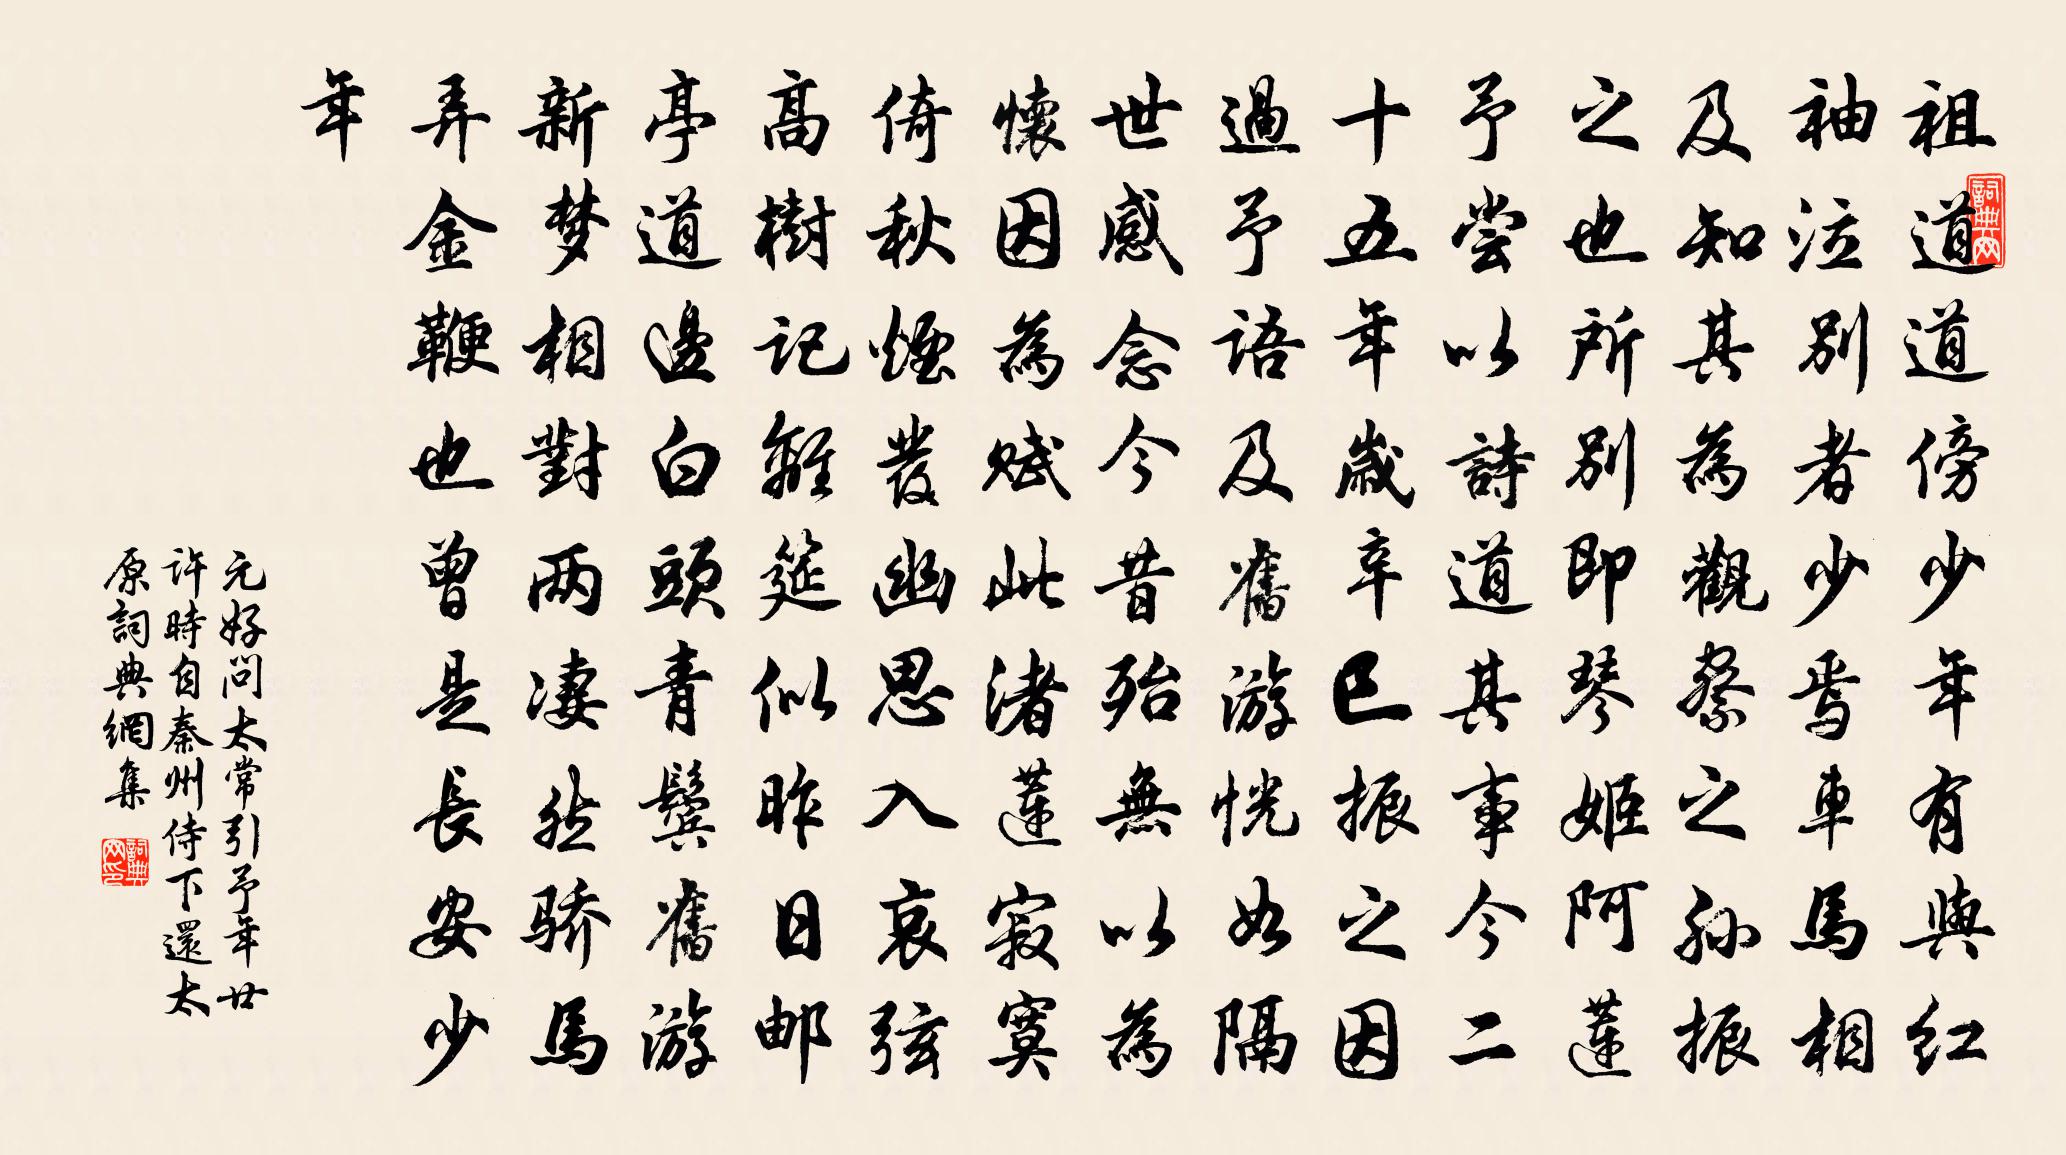 祖道道傍少年有與红
袖泣别者少焉車馬相
及知其為觀察之孙振
之也所别即琴姬阿蓮
予尝以詩道其事今二
十五年歲辛巳振之因
過予語及舊游恍如隔
世感念今昔殆無以為
懷因為賦此渚蓮寂寞
倚秋煙發幽思入哀弦
高樹記離筵似昨日邮
亭道邊白頭青鬓舊游
新梦相對两凄然骄馬
弄金鞭也曾是長安少
年
元好问太常引予年廿
许時自秦州侍下還太
原詞典網集
詞典网
詞典网印